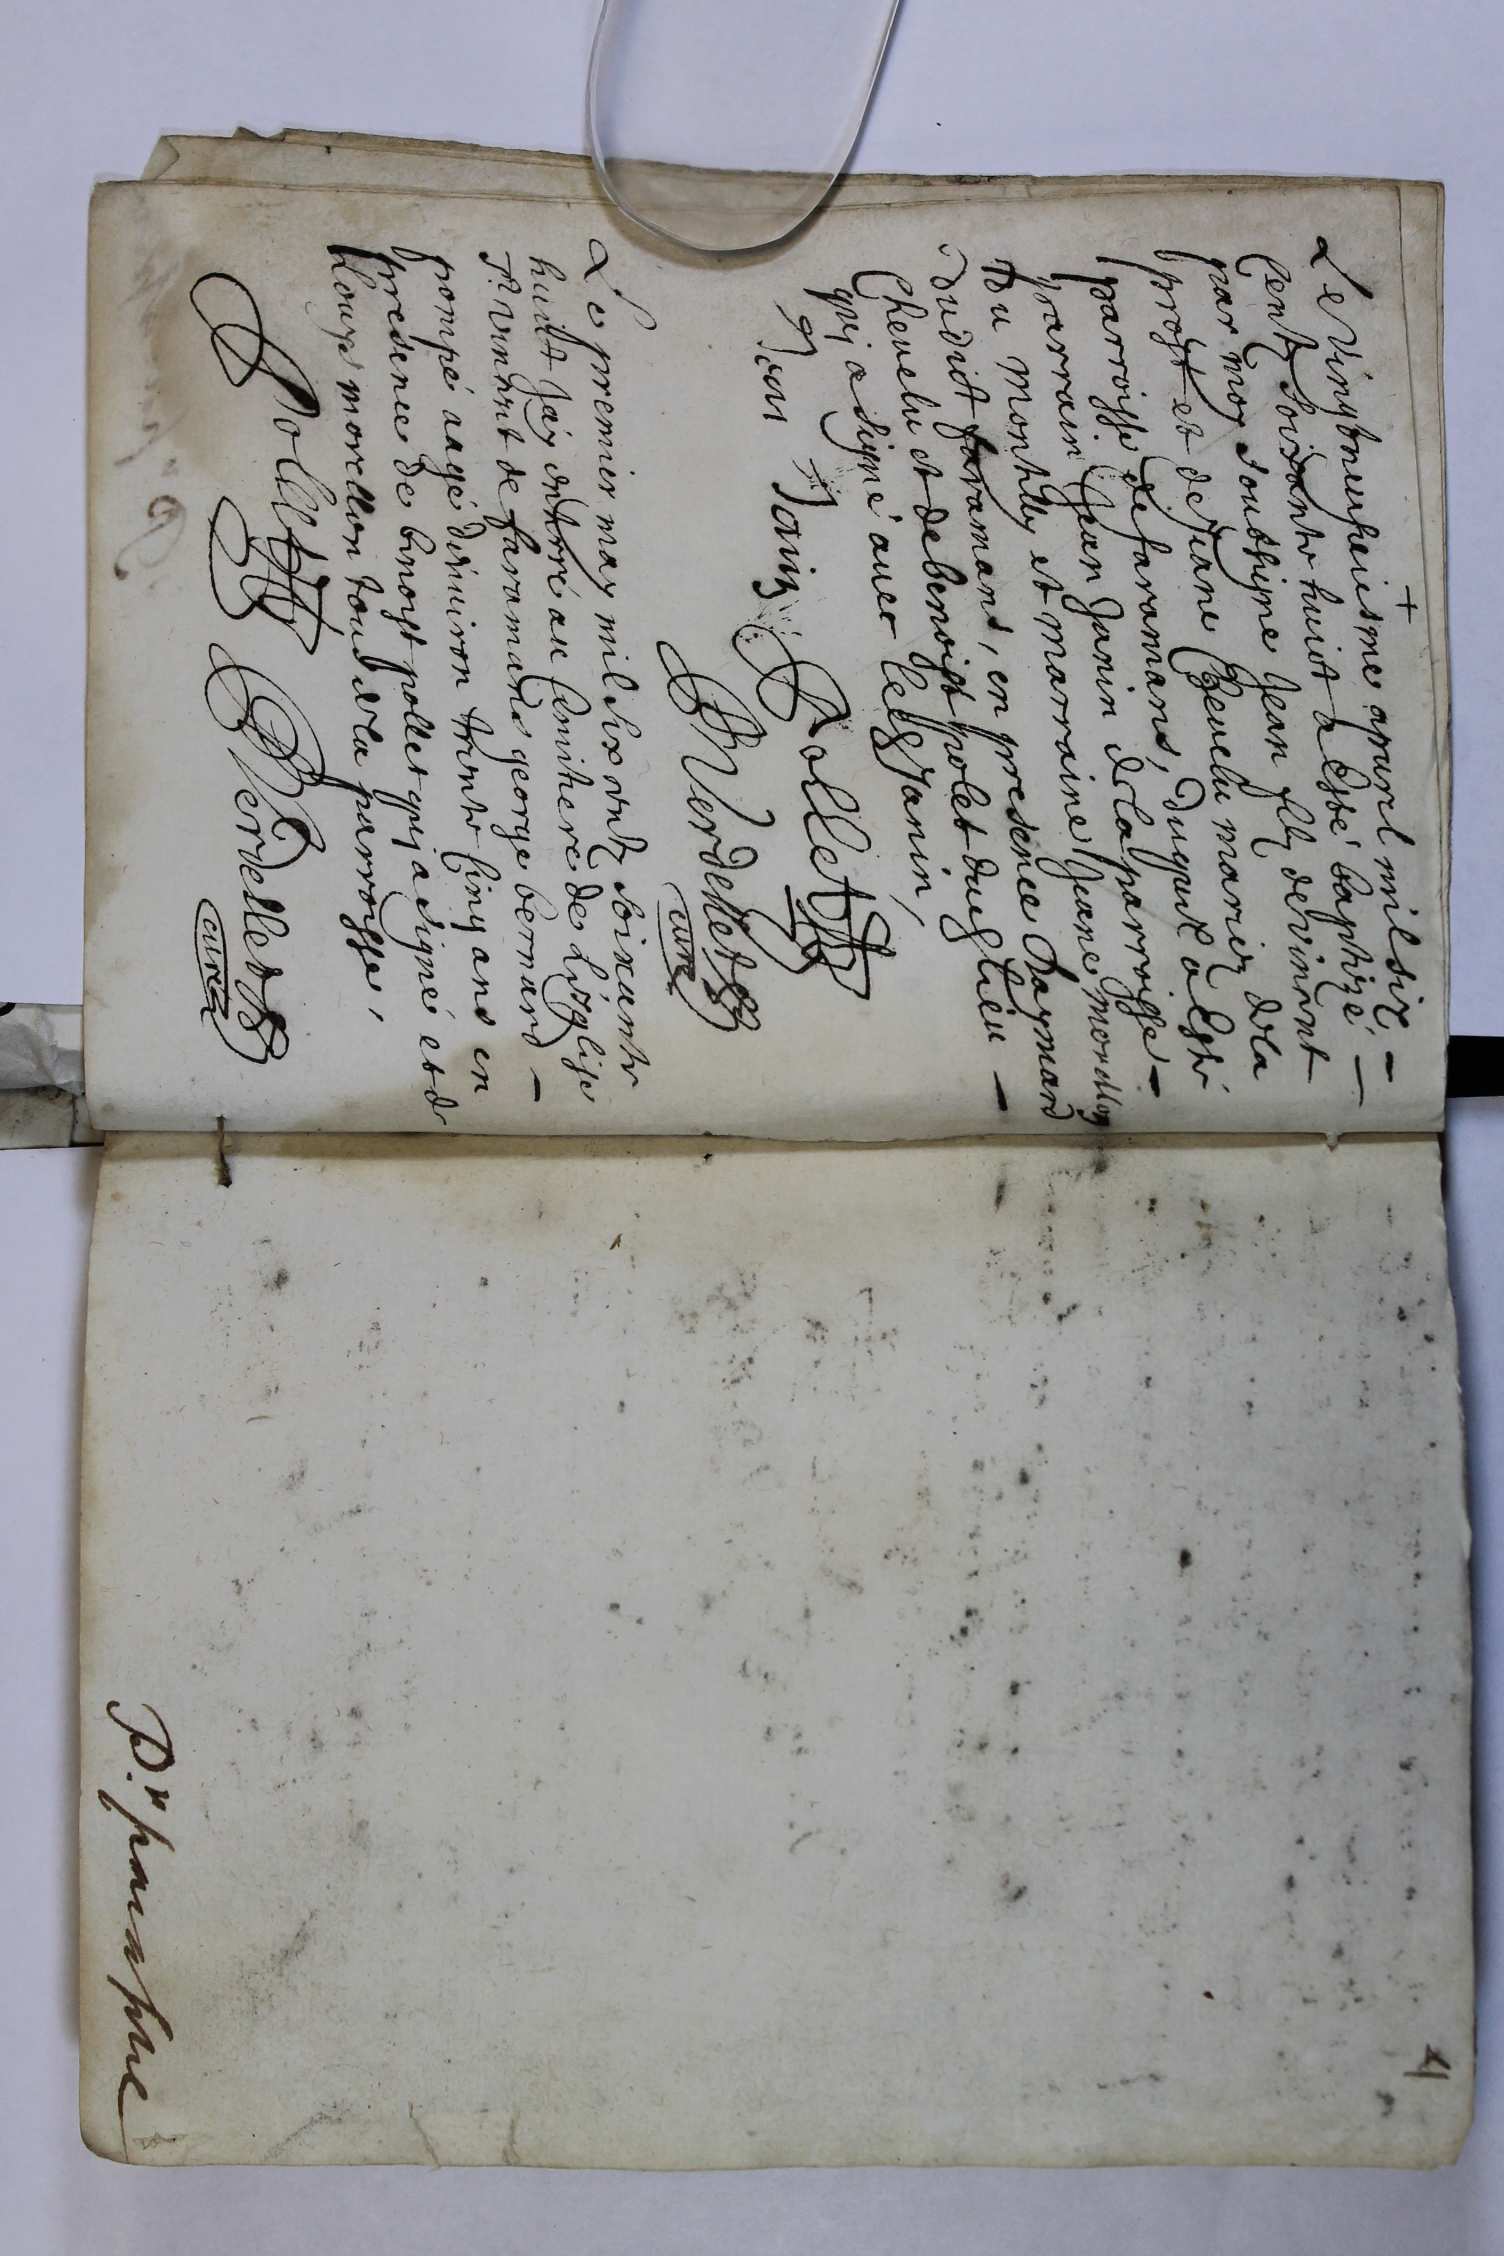 +
Le vingtneufieisme apuril mil six –
Centz Soixante huict a Esté baptizé –
par moy soubsigné Jean filz de vincent
progt et de Jeane Cheuelu mariez de la
parroisse de faramans, Duquel a Esté
parrain Jean Janin de la parroisse –
Du montelly et marraine Jeane morellon
dudict faramans, en presence Daymard
Cheuelu et de benoist polet dug lieu –
qui a signé auec led janin,
Jean Janin Pollet
Verdellet
curé
Le premier may mil six centz soixante
huict Jay enterré au Cemitiere de Lesglise
de faramans george bernard –
pompé aagé denuiron trente cinq ans en
presence de benoyt pollet qui a signé et de
Louys morellon tous de la parroisse,
Pollet Verdellet
curé
4
P.re paraphe